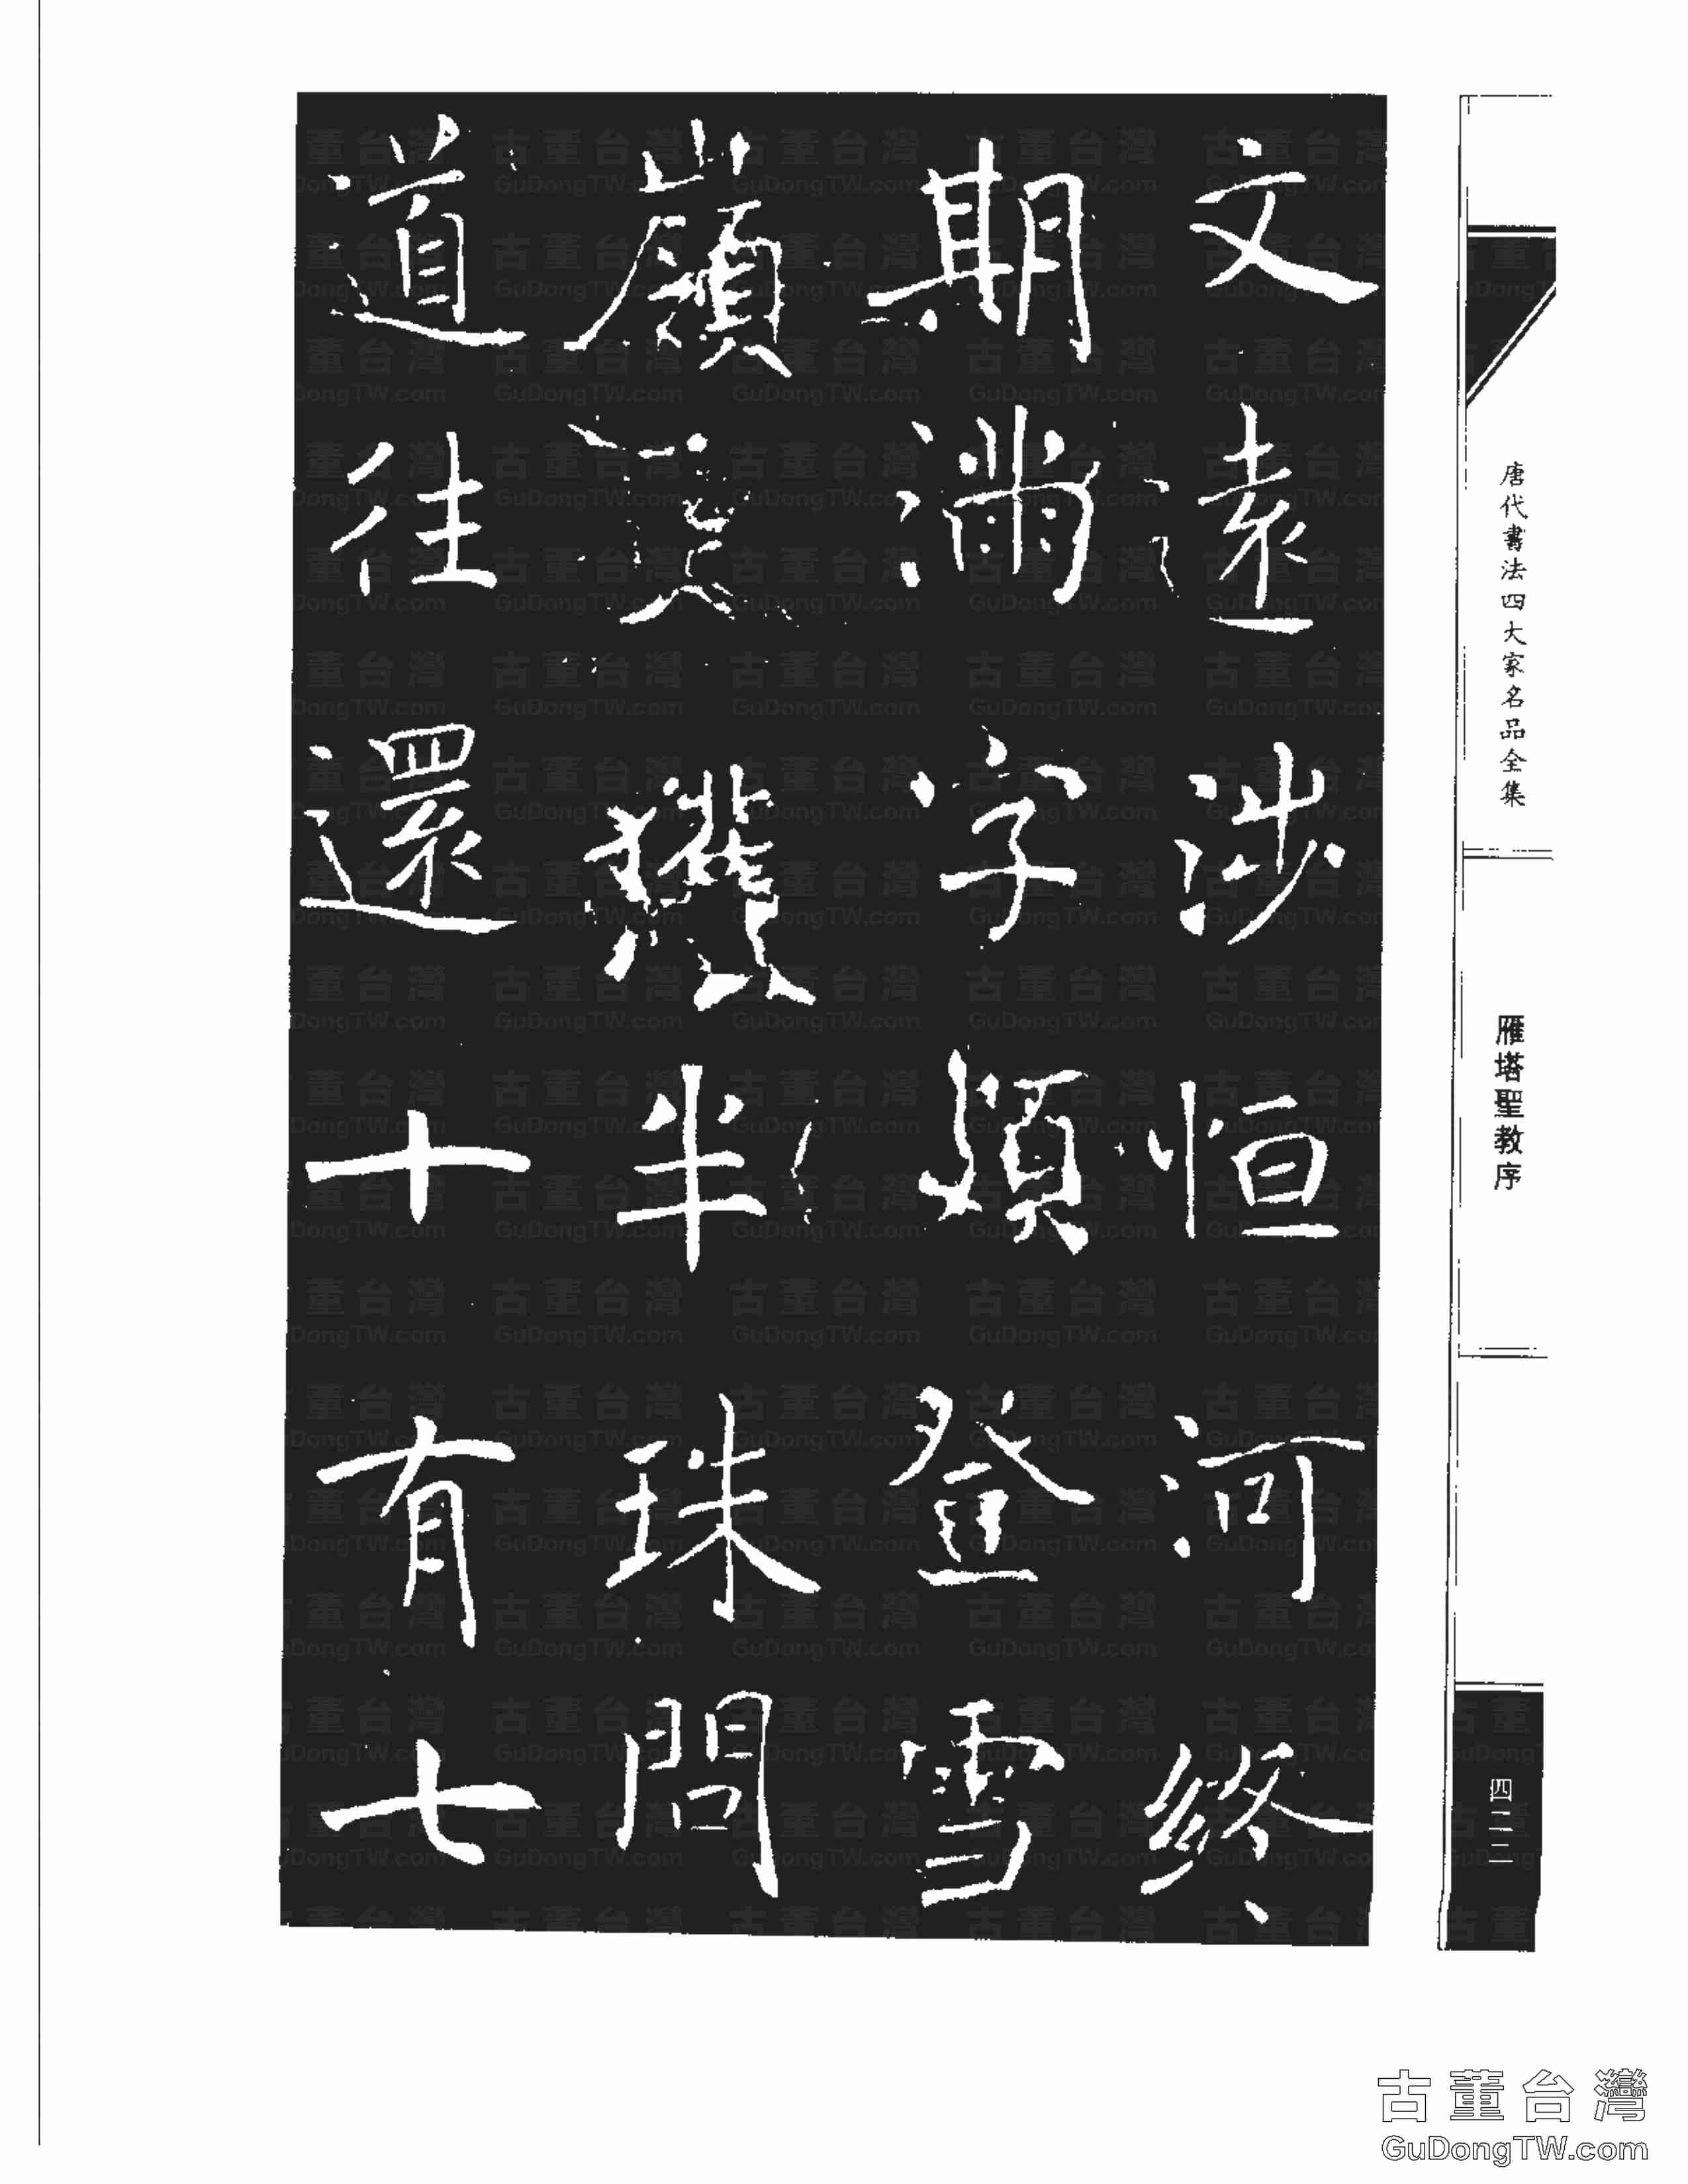 文遠涉恒河終
期滿字頻登雪
嶺更獲半珠問
道往還十有七
唐代書法四大家名品全集
雁塔聖教序
四二二
古董台灣
GuDongTW.com